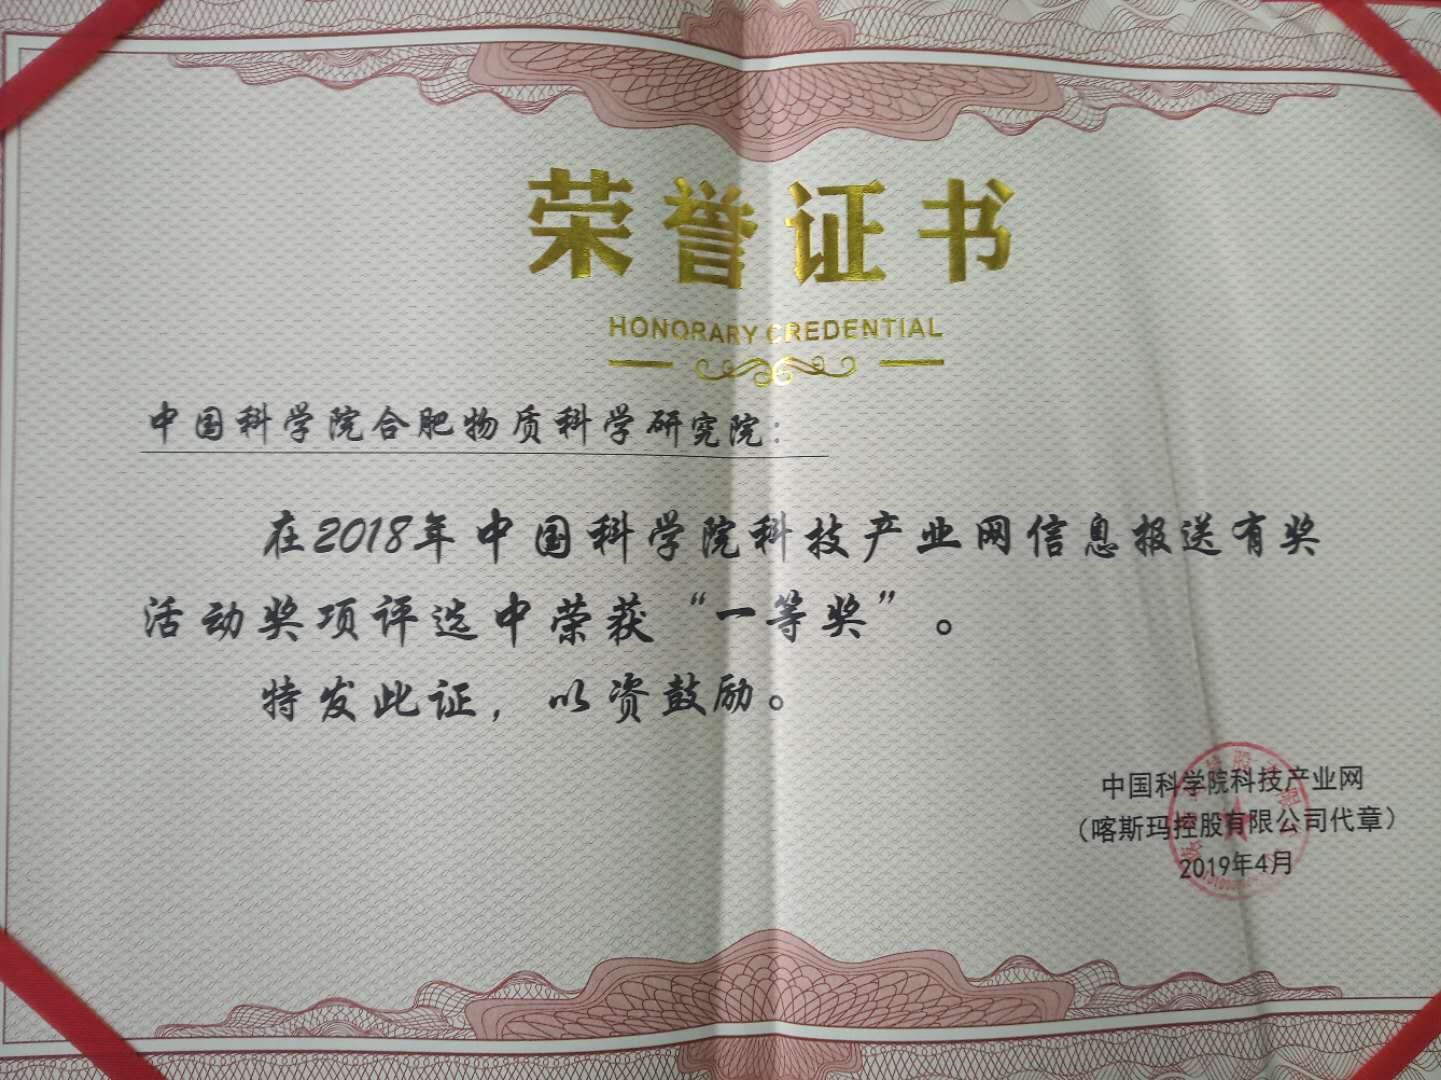 荣誉证书
HONORARY CREDENTIAL
中国科学院合肥物质科学研究院：
在2018年中国科学院科技产业网信息报送有奖
活动奖项评选中荣获“一等奖”。
特发此证，以资鼓励。
中国科学院科技产业网
（喀斯玛控股有限公司代章）
2019年4月